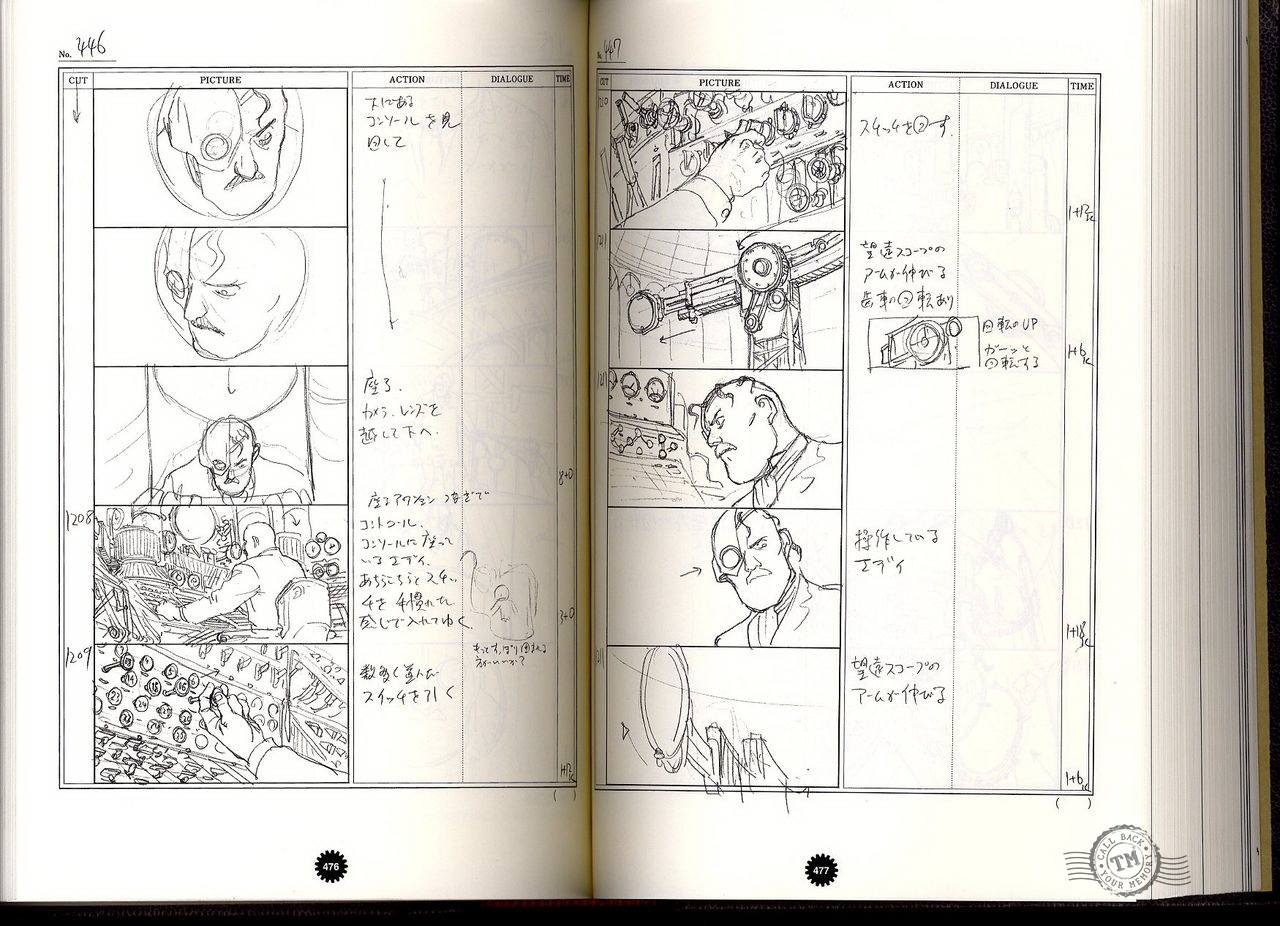 No. 446
CUT PICTURE ACTION DIALOGUE TIME
下にある
コンソールを見
回して
座る.
カメラ.レンズを
越して下へ.
8+0
1208
座るアクションつなぎで
コントロール.
コンソールに座って
いるエディ.
あちらこちらとスイッ
チを手慣れた
感じで入れてゆく
3+0
1209
数多く並んだ
スイッチを引く
1+12K
( )
476
No. 447
CUT PICTURE ACTION DIALOGUE TIME
1210
スイッチを回す.
1+12K
1211
望遠スコープの
アームが伸びる
歯車の回転あり
回転のUP
ガーッと
回転する
1+6K
操作している
エディ
1+18K
望遠スコープの
アームが伸びる
1+6K
( )
477
CALL BACK
TM
YOUR MEMORY